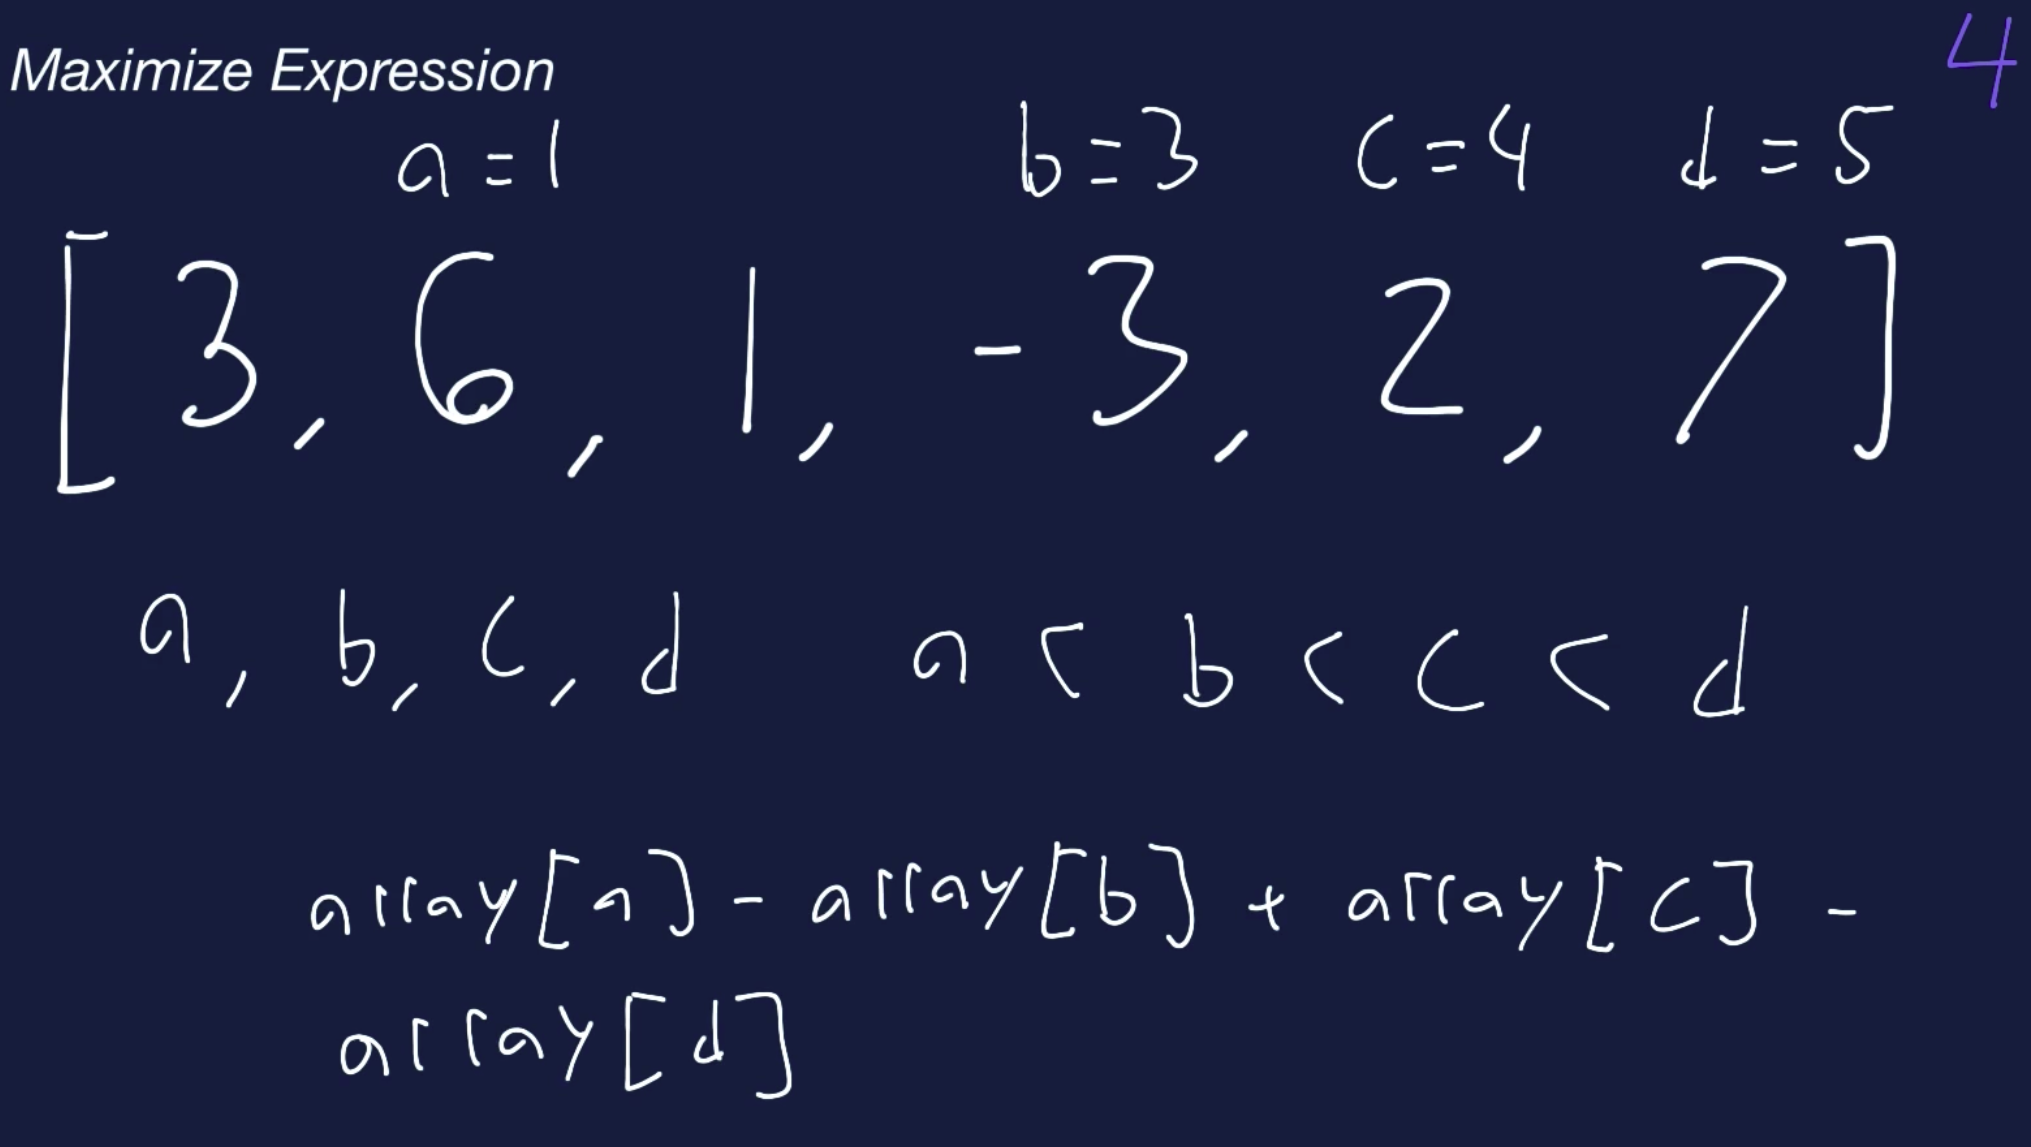 Maximize Expression
4
a = 1 b = 3 c = 4 d = 5
[ 3, 6, 1, -3, 2, 7 ]
a, b, c, d a < b < c < d
array[a] - array[b] + array[c] -
array[d]